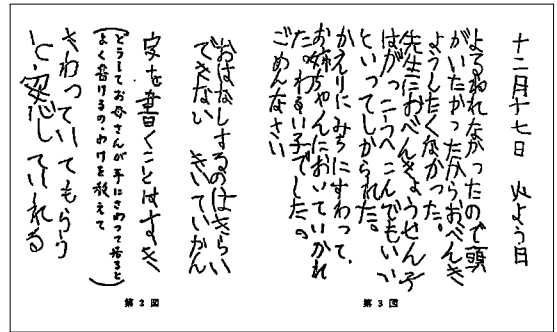 十二月十七日 火よう日
よるねれなかったので頭
がいたかったからおべんき
ようしたくなかった。
先生におべんきょうせん子
はがっこうへこんでもいい
といってしかられた。
かえりにみちにすわって、
お姉ちゃんにおいていかれ
た。わるい子でした。
ごめんなさい
第 3 図
おはなしするのはきらい
できない きいていかん
字を書くことはすき
(どうしてお母さんが手にさわって居ると
よく書けるの・わけを教えて)
さわっていてもらう
と、安心していれる
第 2 図